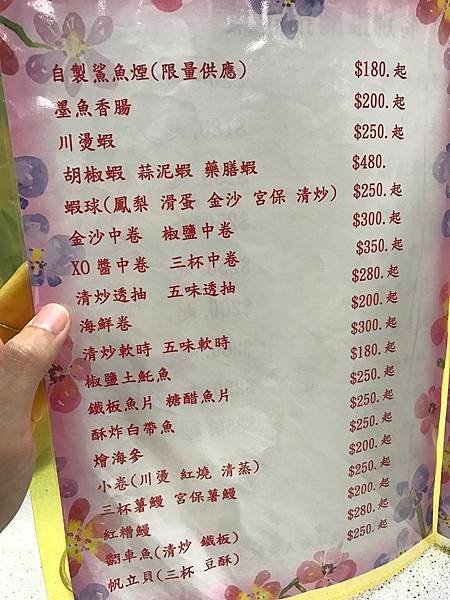 自製鯊魚煙(限量供應) $180.起
墨魚香腸 $200.起
川燙蝦 $250.起
胡椒蝦 蒜泥蝦 藥膳蝦 $480.
蝦球(鳳梨 滑蛋 金沙 宮保 清炒) $250.起
金沙中卷 椒鹽中卷 $300.起
XO醬中卷 三杯中卷 $350.起
清炒透抽 五味透抽 $280.起
海鮮卷 $200.起
清炒軟時 五味軟時 $300.起
椒鹽土魠魚 $180.起
鐵板魚片 糖醋魚片 $250.起
酥炸白帶魚 $250.起
燴海參 $250.起
小卷(川燙 紅燒 清蒸) $200.起
三杯薯鰻 宮保薯鰻 $250.起
紅糟鰻 $200.起
翻車魚(清炒 鐵板) $280.起
帆立貝(三杯 豆酥) $250.起